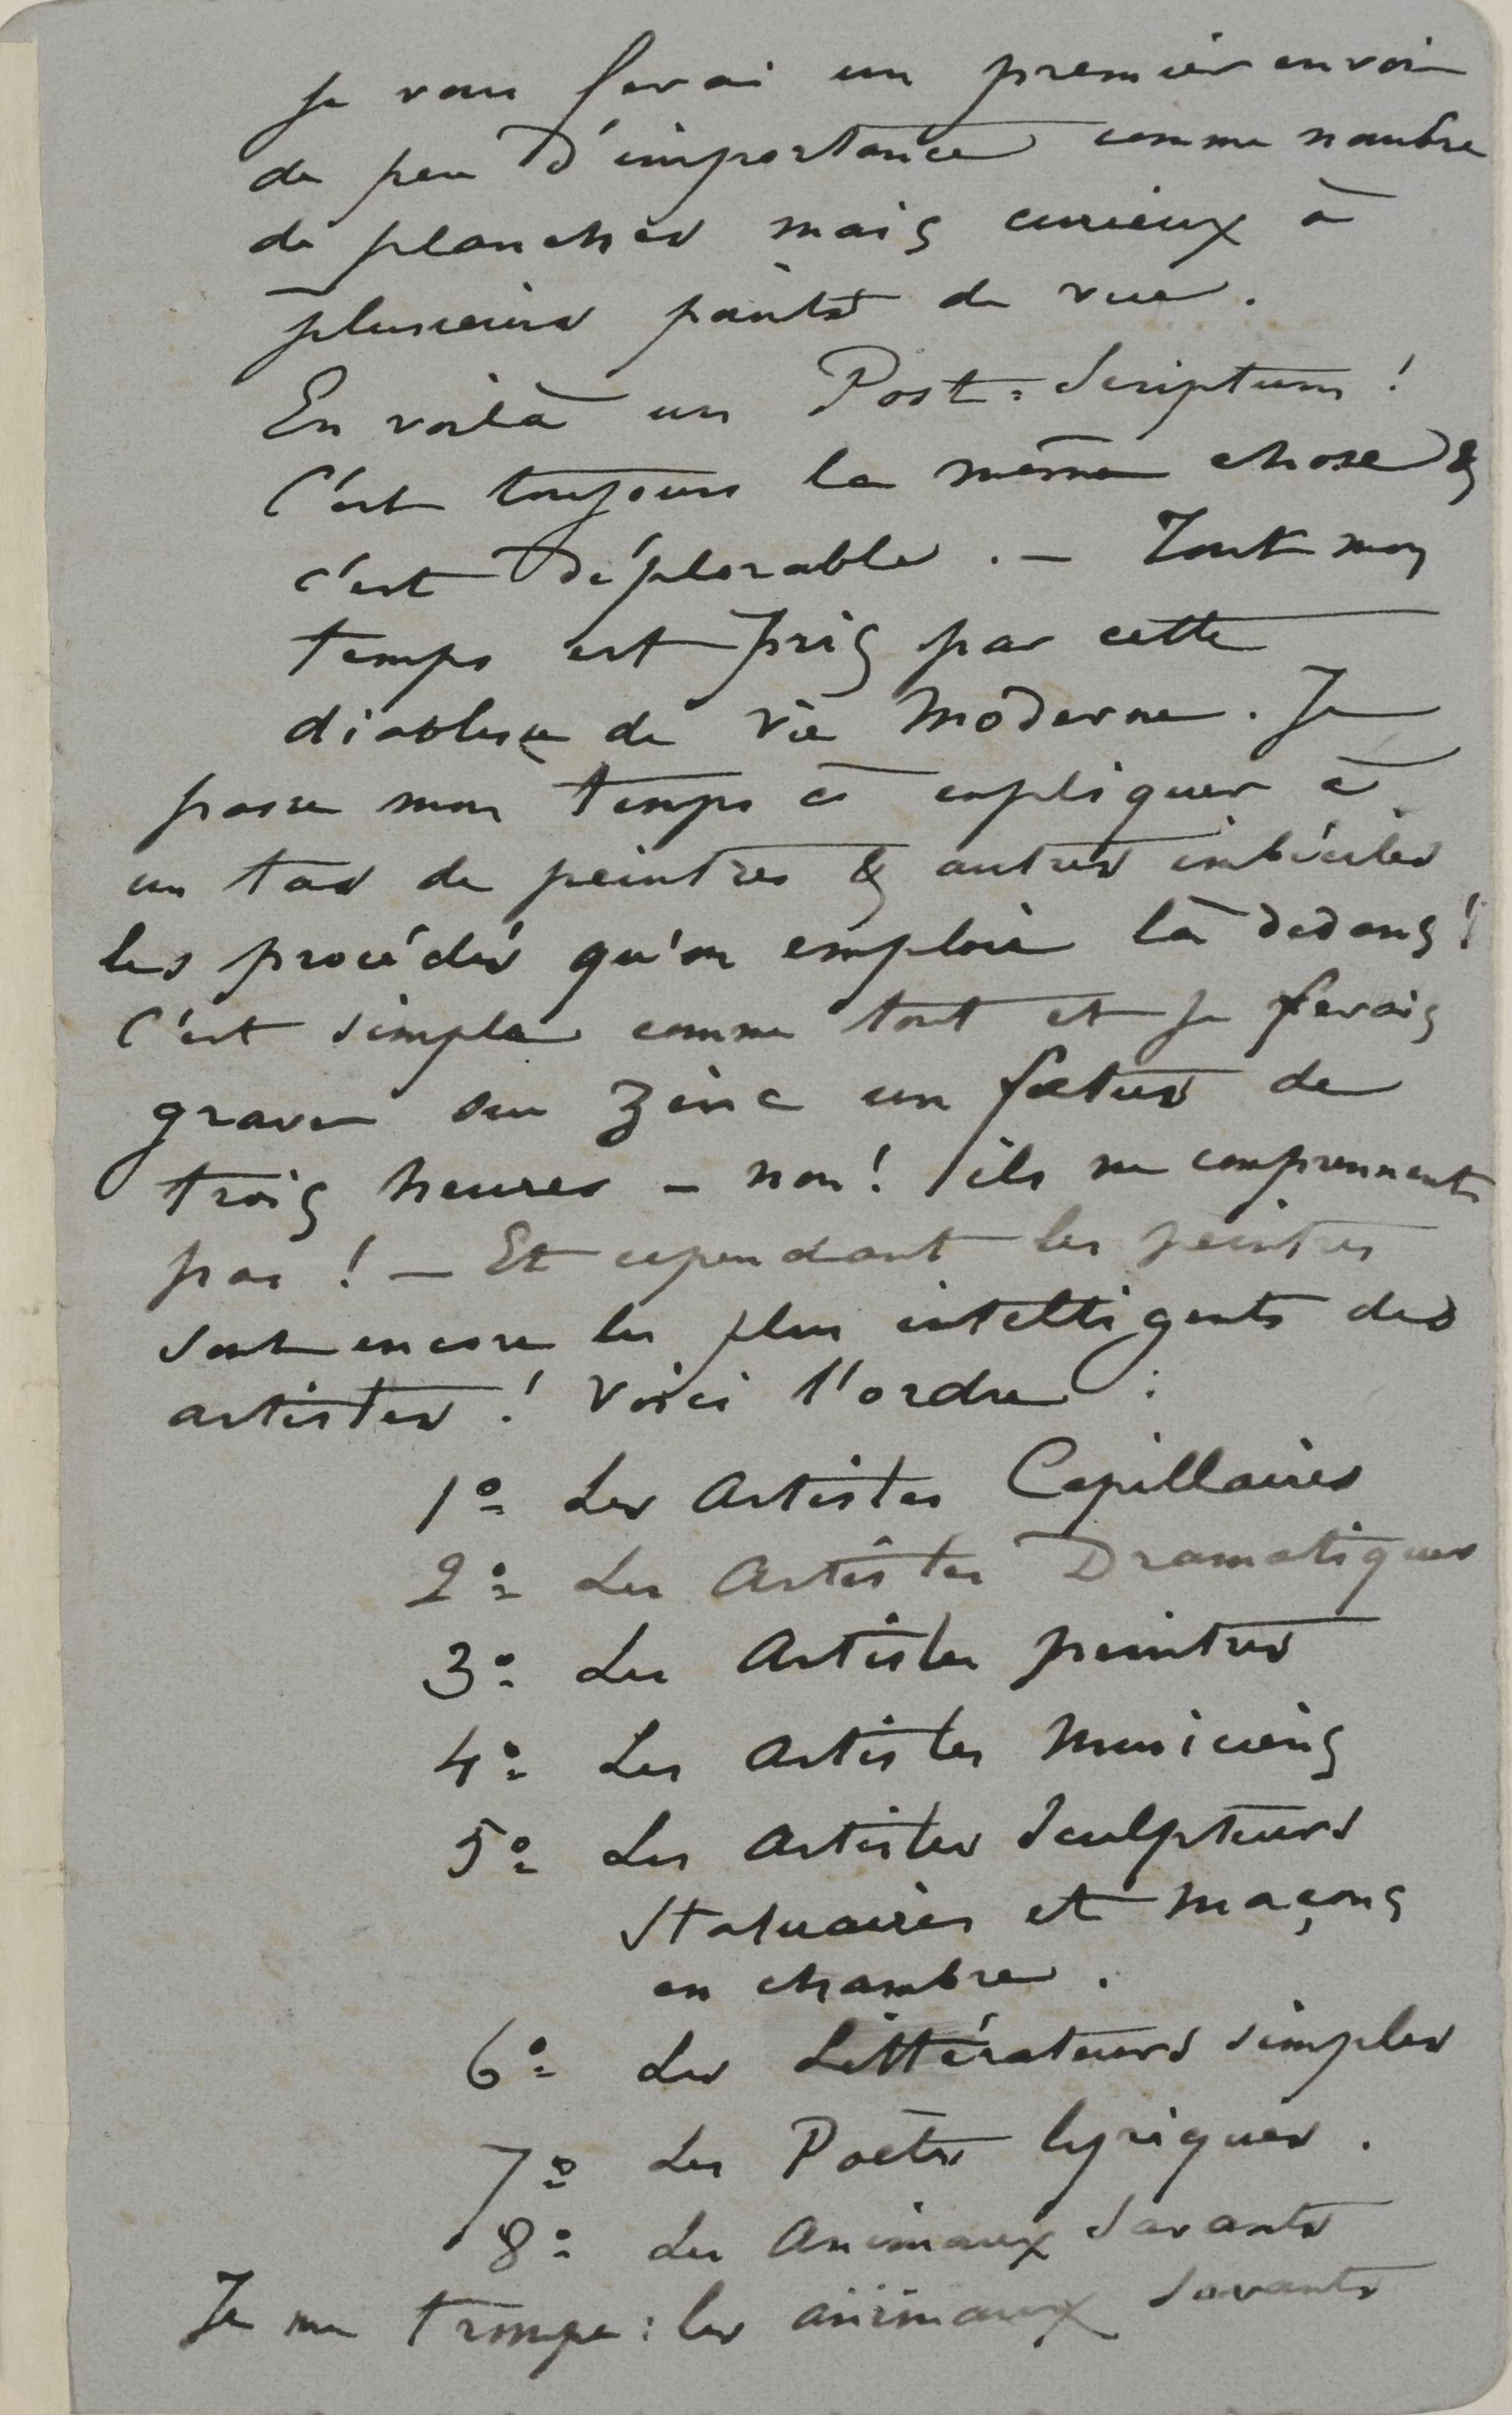 Je vous ferai un premier envoi
de peu d'importance comme nombre
de planches mais curieux à
plusieurs points de vue.
En voilà un Post-Scriptum !
C'est toujours la même chose &
c'est déplorable. — Tout mon
temps est pris par cette
diablesse de Vie Moderne. Je
passe mon temps à expliquer à
un tas de peintres & autres imbéciles
les procédés qu'on emploie là dedans !
C'est simple comme tout et je ferais
graver sur zinc un fœtus de
trois heures — non ! ils ne comprennent
pas ! — Et cependant les peintres
sont encore les plus intelligents des
artistes ! Voici l'ordre :
1º Les Artistes Capillaires
2º Les Artistes Dramatiques
3º Les Artistes peintres
4º Les Artistes Musiciens
5º Les Artistes Sculpteurs
Statuaires et Maçons
en chambre.
6º Les Littérateurs simples
7º Les Poètes lyriques.
8º Les Animaux Savants
Je me trompe : les animaux savants